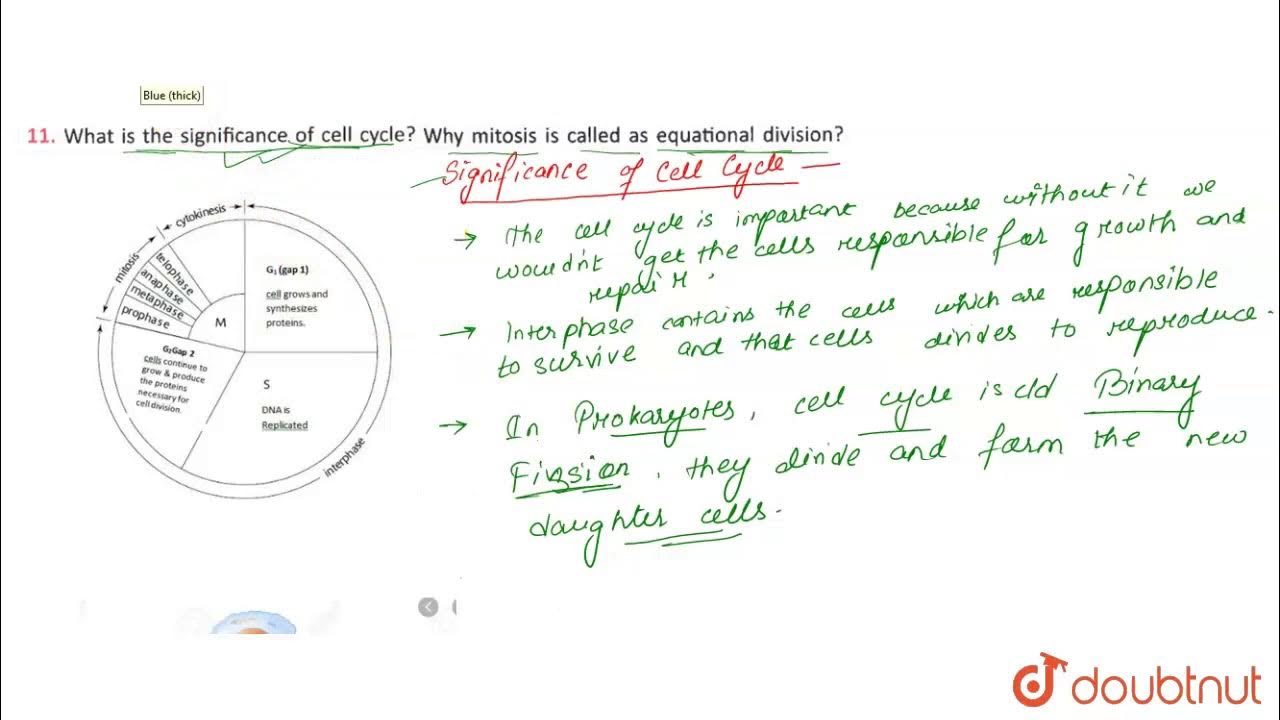 Blue (thick)
11. What is the significance of cell cycle? Why mitosis is called as equational division?
Significance of Cell Cycle —
→ The cell cycle is important because without it we
wouldn't get the cells responsible for growth and
repair.
→ Interphase contains the cells which are responsible
to survive and that cells divides to reproduce.
→ In Prokaryotes, cell cycle is c/d Binary
Fission, they divide and form the new
daughter cells.
cytokinesis
mitosis
telophase
anaphase
metaphase
prophase
M
G₁ (gap 1)
cell grows and
synthesizes
proteins.
G₂Gap 2
cells continue to
grow & produce
the proteins
necessary for
cell division.
S
DNA is
Replicated
interphase
doubtnut